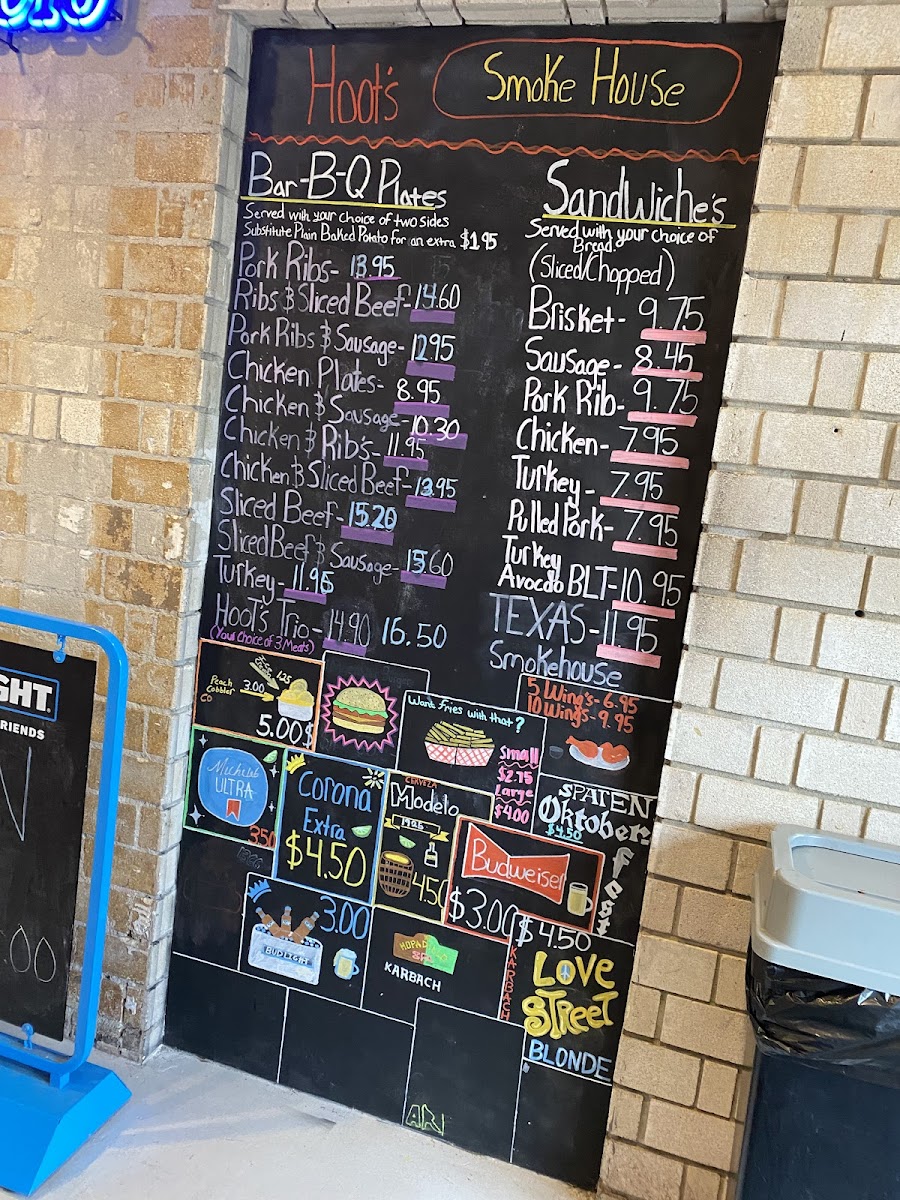 Hoot's
Smoke House
Bar-B-Q Plates
Served with your choice of two sides
Substitute Plain Baked Potato for an extra $1.95
Pork Ribs- 13.95
Ribs & Sliced Beef- 14.60
Pork Ribs & Sausage- 12.95
Chicken Plates- 8.95
Chicken & Sausage- 10.30
Chicken & Rib's- 11.95
Chicken & Sliced Beef- 13.95
Sliced Beef- 15.20
Sliced Beef & Sausage- 13.60
Turkey- 11.95
Hoot's Trio- 14.90 16.50
(Your Choice of 3 Meats)
SandWiche's
Served with your choice of
Bread.
(Sliced/Chopped)
Brisket- 9.75
Sausage- 8.45
Pork Rib- 9.75
Chicken- 7.95
Turkey- 7.95
Pulled Pork- 7.95
Turkey
Avocdo BLT- 10.95
TEXAS- 11.95
Smokehouse
Peach
Cobbler
3.00
1.25
5.00$
Want fries with that?
Small
$2.75
Large
$4.00
5 Wing's- 6.95
10 Wing's- 9.95
Michelob
ULTRA
3.50
Corona
Extra
$4.50
CERVEZA
Modelo
1925
4.50
Budweiser
$3.00
SPATEN
Oktoberfest
$4.50
3.00
BUD LIGHT
HOPAD
KARBACH
$4.50
KARBACH
LOVE
STREET
BLONDE
GHT
RIENDS
N
.00